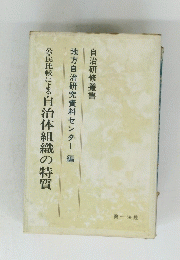 自治研修叢書
地方自治研究資料センター 編
公・民比較による 自治体組織の特質
第一法規